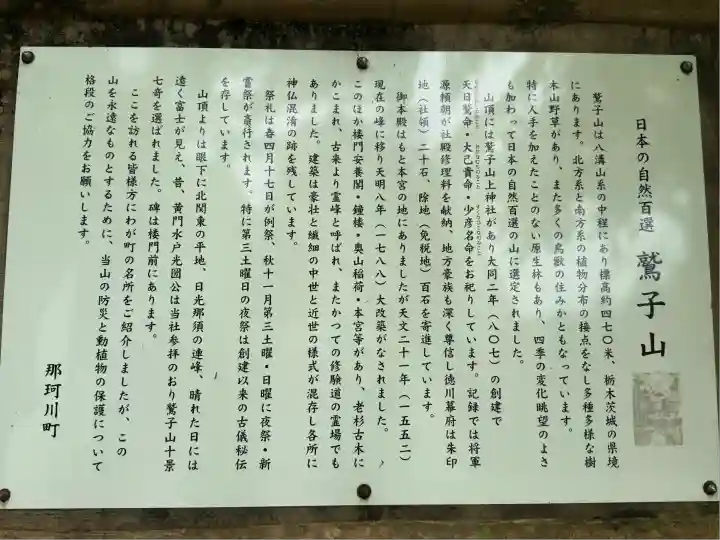 日本の自然百選　鷲子山
鷲子山は八溝山系の中程にあり標高約四七〇米、栃木茨城の県境
にあります。北方系と南方系の植物分布の接点をなし多種多様な樹
木山野草があり、また多くの鳥獣の住みかともなっています。
特に人手を加えたことのない原生林もあり、四季の変化眺望のよさ
も加わって日本の自然百選の山に選定されました。
山頂には鷲子山上神社があり大同二年（八〇七）の創建で
天日鷲命・大己貴命・少彦名命をお祀りしています。記録では将軍
源頼朝が社殿修理料を献納、地方豪族も深く尊信し徳川幕府は朱印
地（社領）二十石、除地（免税地）百石を寄進しています。
御本殿はもと本宮の地にありましたが天文二十一年（一五五二）
現在の峰に移り天明八年（一七八八）大改築がなされました。
このほか楼門安養閣・鐘楼・奥山稲荷・本宮等があり、老杉古木に
かこまれ、古来より霊峰と呼ばれ、またかつての修験道の霊場でも
ありました。建築は豪壮と繊細の中世と近世の様式が混存し各所に
神仏混淆の跡を残しています。
祭礼は春四月十七日が例祭、秋十一月第三土曜・日曜に夜祭・新
嘗祭が斎行されます。特に第三土曜日の夜祭は創建以来の古儀秘伝
を存しています。
山頂よりは眼下に北関東の平地、日光那須の連峰、晴れた日には
遠く富士が見え、昔、黄門水戸光圀公は当社参拝のおり鷲子山十景
七奇を選ばれました。碑は楼門前にあります。
ここを訪れる皆様方にわが町の名所をご紹介しましたが、この
山を永遠なものとするために、当山の防災と動植物の保護について
格段のご協力をお願いします。
那珂川町